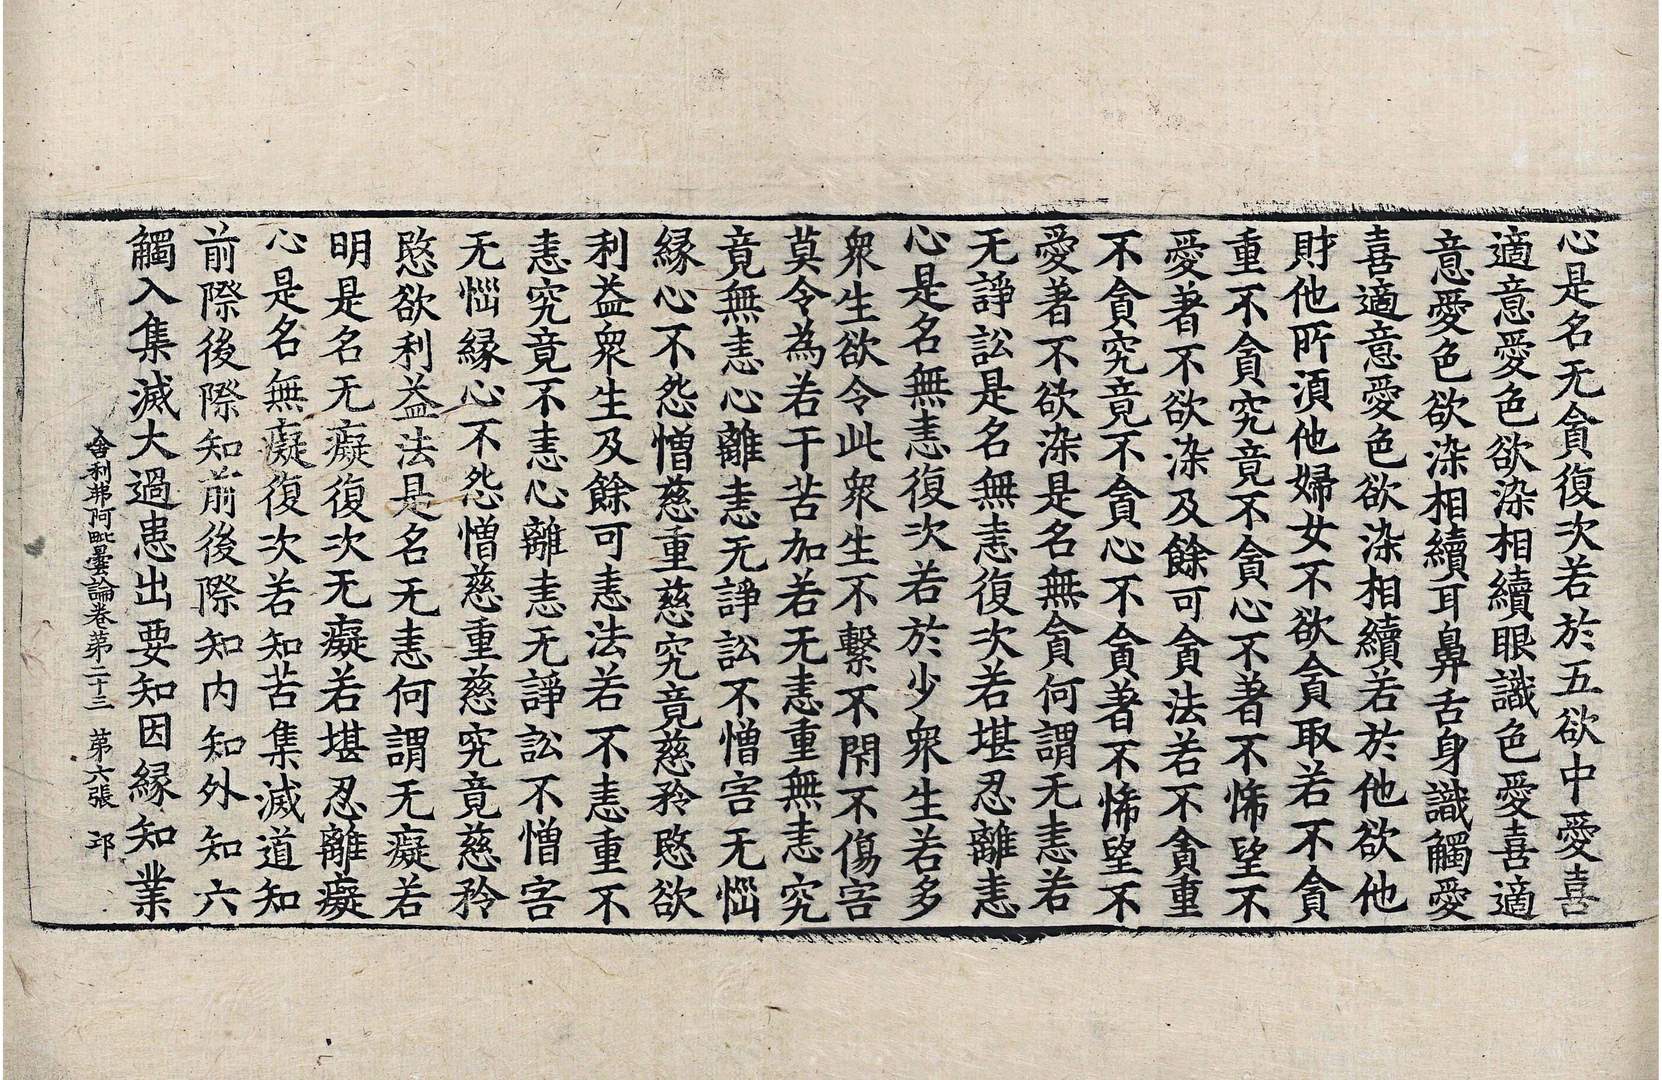 心是名无貪復次若於五欲中愛喜
適意愛色欲染相續眼識色愛喜適
意愛色欲染相續耳鼻舌身識觸愛
喜適意愛色欲染相續若於他欲他
財他所須他婦女不欲貪取若不貪
重不貪究竟不貪心不著不悕望不
愛著不欲染及餘可貪法若不貪重
不貪究竟不貪心不貪著不悕望不
愛著不欲染是名無貪何謂无恚若
无諍訟是名無恚復次若堪忍離恚
心是名無恚復次若於少衆生若多
衆生欲令此衆生不繫不閇不傷害
莫令為若干苦加若无恚重無恚究
竟無恚心離恚无諍訟不憎害无惱
緣心不怨憎慈重慈究竟慈矜愍欲
利益衆生及餘可恚法若不恚重不
恚究竟不恚心離恚无諍訟不憎害
无惱緣心不怨憎慈重慈究竟慈矜
愍欲利益法是名无恚何謂无癡若
明是名无癡復次无癡若堪忍離癡
心是名無癡復次若知苦集滅道知
前際後際知前後際知內知外知六
觸入集滅大過患出要知因緣知業
舍利弗阿毗曇論卷第二十三 第六張 邛